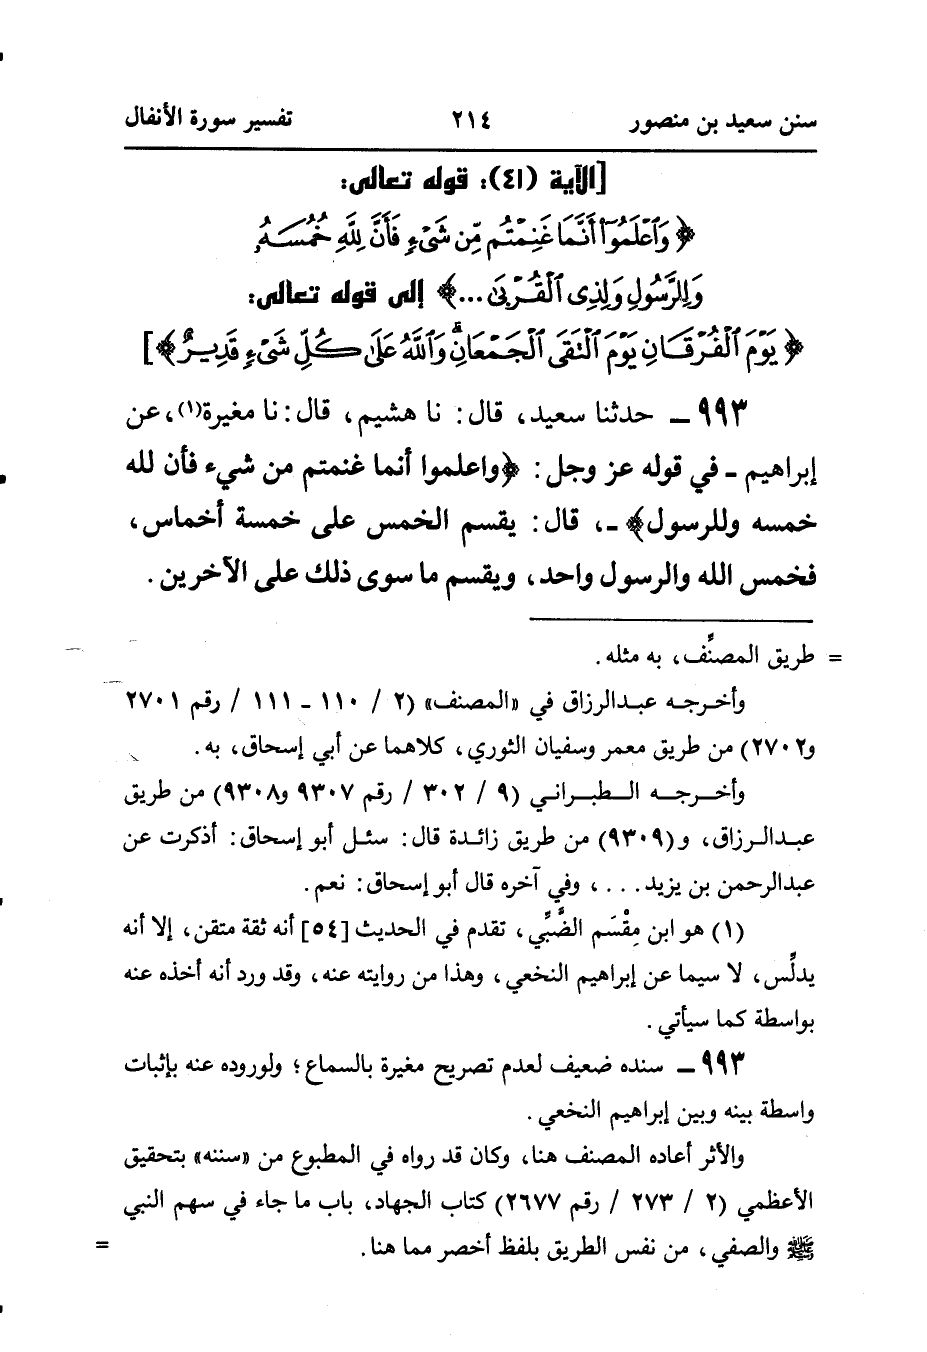 سنن سعيد بن منصور ٢١٤ تفسير سورة الأنفال
[الآية (٤١): قوله تعالى:
﴿ وَٱعْلَمُوٓا۟ أَنَّمَا غَنِمْتُم مِّن شَىْءٍ فَأَنَّ لِلَّهِ خُمُسَهُۥ
وَلِلرَّسُولِ وَلِذِى ٱلْقُرْبَىٰ ...﴾ إلى قوله تعالى:
﴿ يَوْمَ ٱلْفُرْقَانِ يَوْمَ ٱلْتَقَى ٱلْجَمْعَانِۗ وَٱللَّهُ عَلَىٰ كُلِّ شَىْءٍ قَدِيرٌ ﴾]
٩٩٣ ـ حدثنا سعيد، قال: نا هشيم، قال: نا مغيرة(١)، عن
إبراهيم ـ في قوله عز وجل: ﴿واعلموا أنما غنمتم من شيء فأن لله
خمسه وللرسول﴾ ـ، قال: يقسم الخمس على خمسة أخماس،
فخمس الله والرسول واحد، ويقسم ما سوى ذلك على الآخرين.
= طريق المصنِّف، به مثله.
وأخرجه عبدالرزاق في «المصنف» (٢ / ١١٠ ـ ١١١ / رقم ٢٧٠١
و٢٧٠٢) من طريق معمر وسفيان الثوري، كلاهما عن أبي إسحاق، به.
وأخرجه الطبراني (٩ / ٣٠٢ / رقم ٩٣٠٧ و٩٣٠٨) من طريق
عبدالرزاق، و(٩٣٠٩) من طريق زائدة قال: سئل أبو إسحاق: أذكرت عن
عبدالرحمن بن يزيد...، وفي آخره قال أبو إسحاق: نعم.
(١) هو ابن مِقْسَم الضَّبِّي، تقدم في الحديث [٥٤] أنه ثقة متقن، إلا أنه
يدلِّس، لا سيما عن إبراهيم النخعي، وهذا من روايته عنه، وقد ورد أنه أخذه عنه
بواسطة كما سيأتي.
٩٩٣ ـ سنده ضعيف لعدم تصريح مغيرة بالسماع؛ ولوروده عنه بإثبات
واسطة بينه وبين إبراهيم النخعي.
والأثر أعاده المصنف هنا، وكان قد رواه في المطبوع من «سننه» بتحقيق
الأعظمي (٢ / ٢٧٣ / رقم ٢٦٧٧) كتاب الجهاد، باب ما جاء في سهم النبي
ﷺ والصفي، من نفس الطريق بلفظ أخصر مما هنا. =